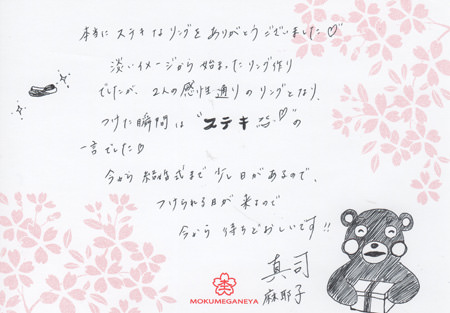 本当に ステキな リングを ありがとうございました♡
淡いイメージから 始まったリング作り
でしたが、2人の感性通りの リングとなり、
つけた瞬間は "ステキ♡"の
一言でした♡
今から 結婚式まで 少し日があるので、
つけられる日が 来るので
今から 待ちどおしいです!!
真司
麻耶子
MOKUMEGANEYA